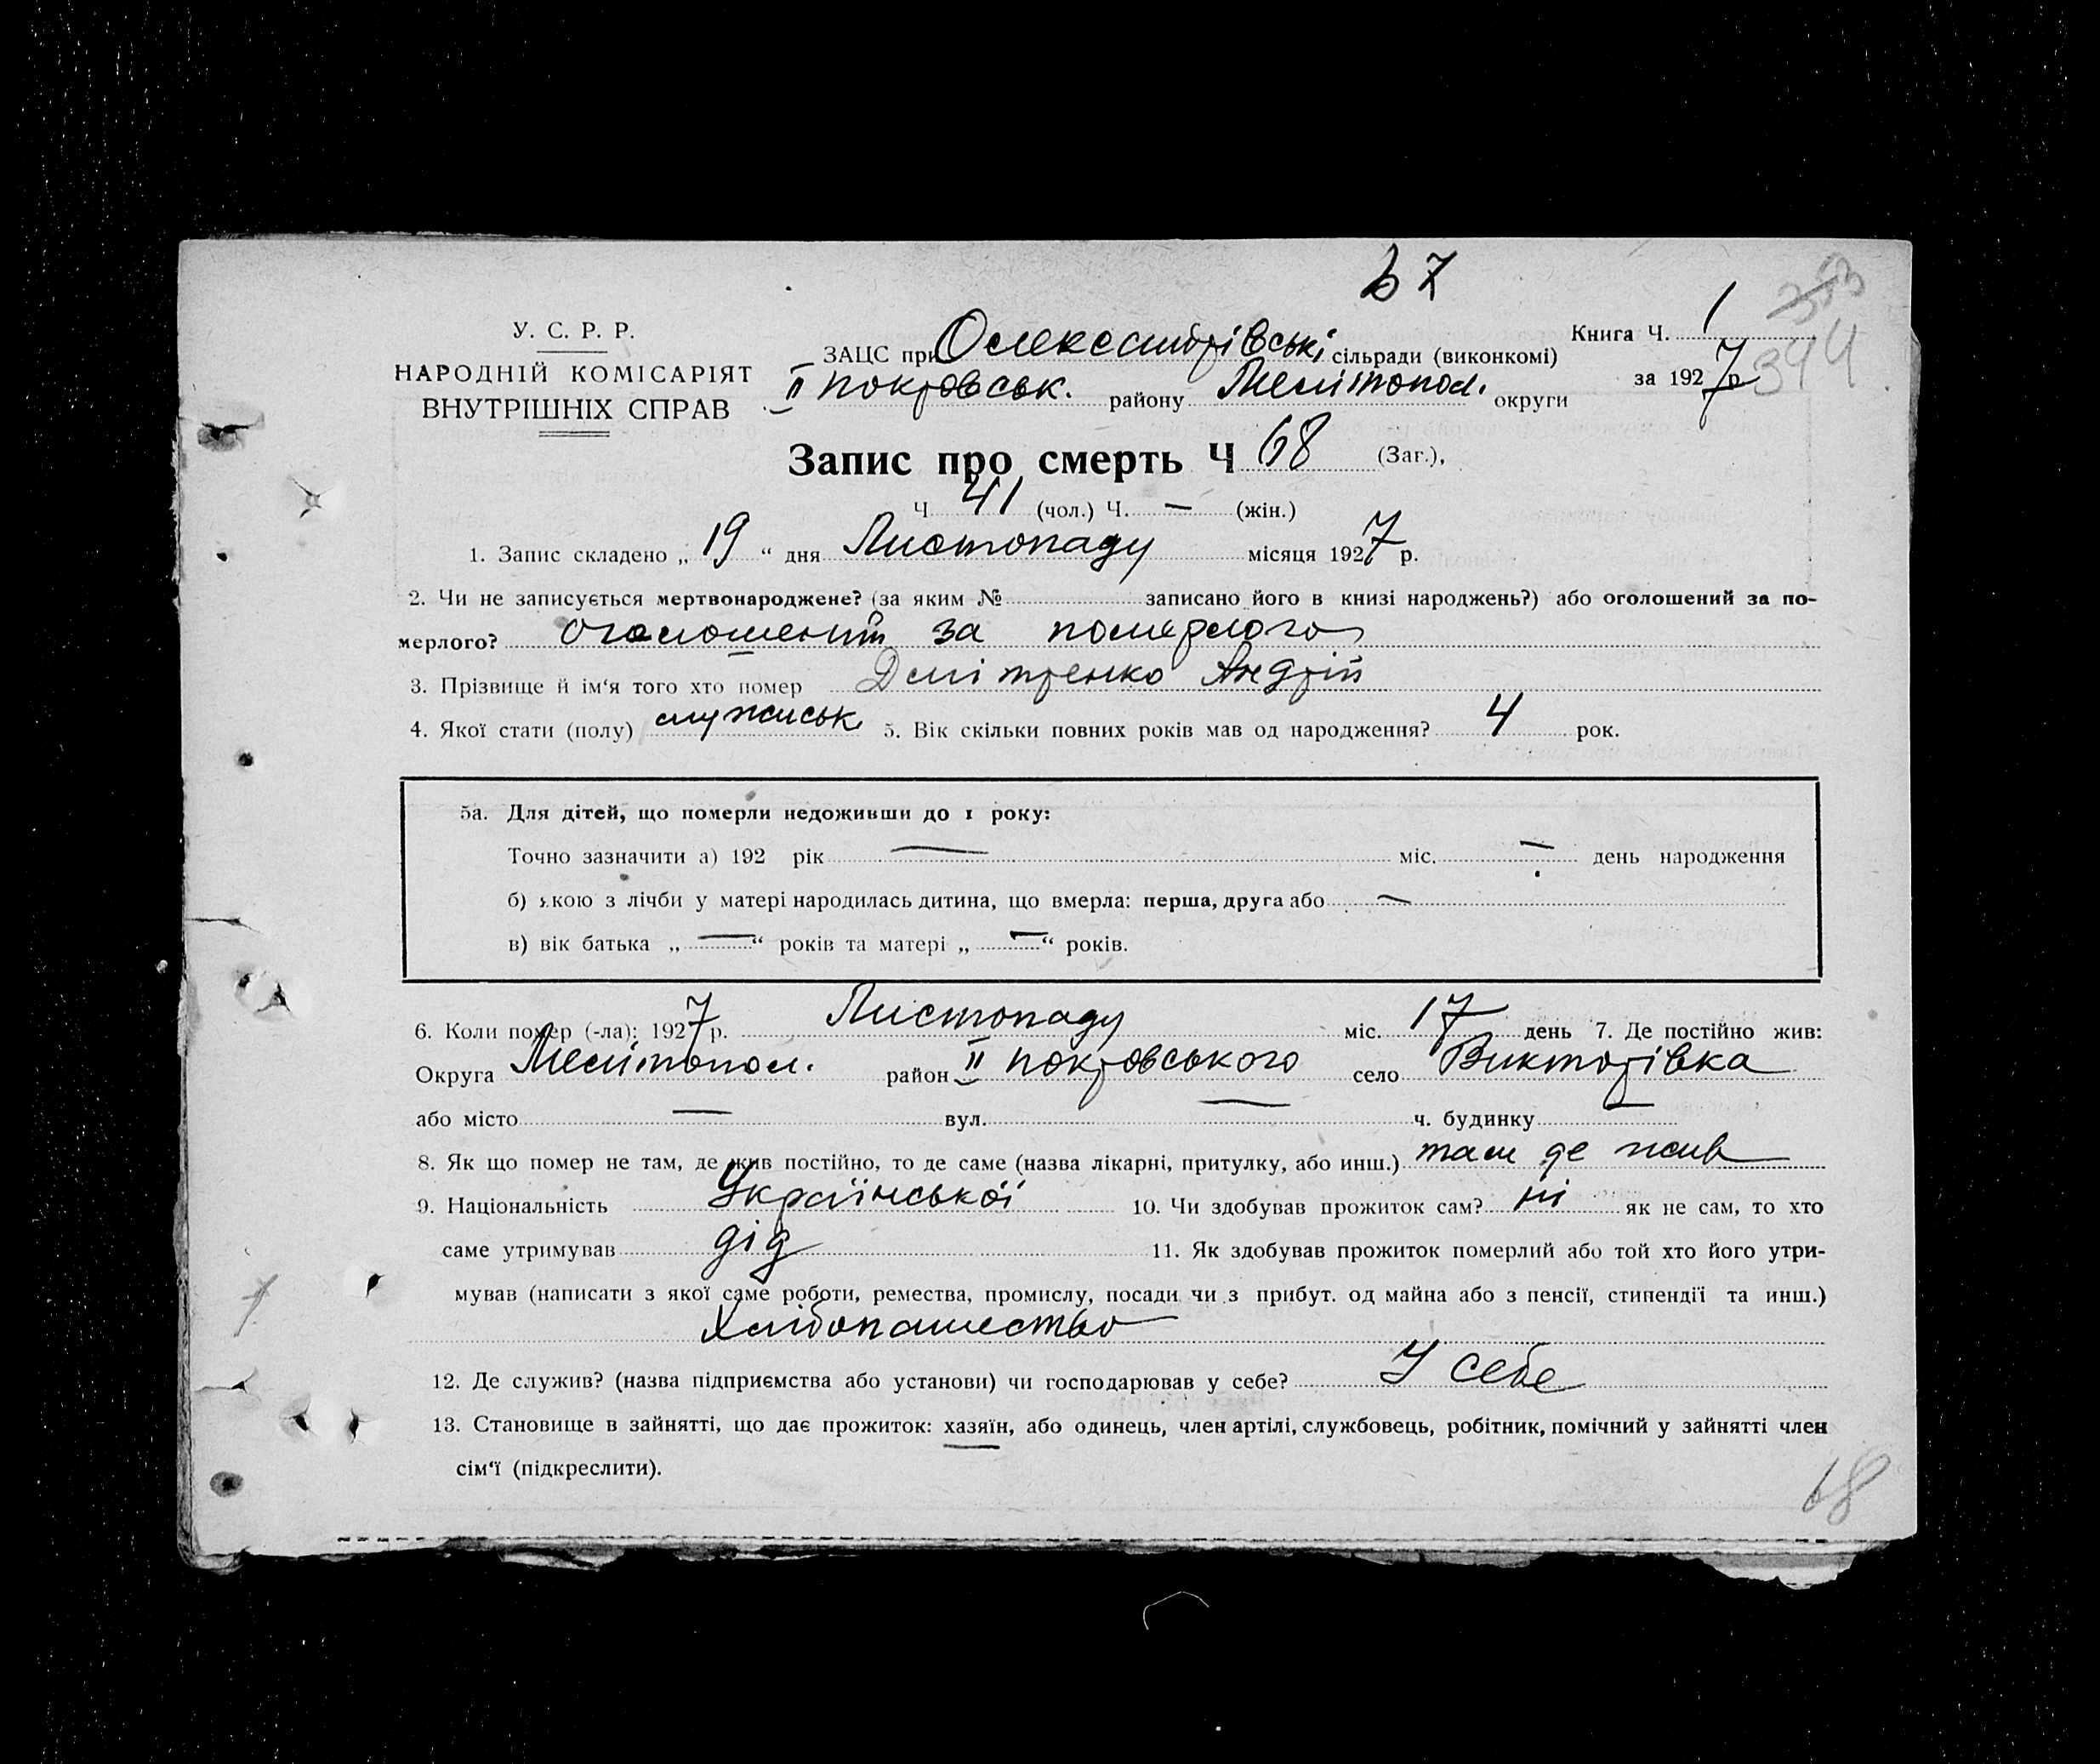 67
353
344
У. С. Р. Р.
НАРОДНІЙ КОМІСАРІЯТ
ВНУТРІШНІХ СПРАВ
ЗАЦС при Олександрівські сільради (виконкомі)
II покровськ. району Мелітопол. округи
Книга Ч. 1
за 1927 р
Запис про смерть Ч 68 (Заг.),
Ч 41 (чол.) Ч. — (жін.)
1. Запис складено „ 19 “ дня Листопаду місяця 1927 р.
2. Чи не записується мертвонароджене? (за яким № записано його в книзі народжень?) або оголошений за по-
мерлого? оголошений за померлого
3. Прізвище й ім‘я того хто помер Дмітренко Андрій
4. Якої стати (полу) мужськ 5. Вік скільки повних років мав од народження? 4 рок.
5а. Для дітей, що померли недоживши до 1 року:
Точно зазначити а) 192 рік — міс. — день народження
б) якою з лічби у матері народилась дитина, що вмерла: перша, друга або —
в) вік батька „ — “ років та матері „ — “ років.
6. Коли помер (-ла): 1927 р. Листопаду міс. 17 день 7. Де постійно жив:
Округа Мелітопол. район II покровського село Викторівка
або місто — вул. — ч. будинку —
8. Як що помер не там, де жив постійно, то де саме (назва лікарні, притулку, або инш.) там де жив
9. Національність Української 10. Чи здобував прожиток сам? ні як не сам, то хто
саме утримував дід 11. Як здобував прожиток померлий або той хто його утри-
мував (написати з якої саме роботи, ремества, промислу, посади чи з прибут. од майна або з пенсії, стипендії та инш.)
Хлібопашество
12. Де служив? (назва підприємства або установи) чи господарював у себе? У себе
13. Становище в зайнятті, що дає прожиток: хазяїн, або одинець, член артілі, службовець, робітник, помічний у зайнятті член
сім‘ї (підкреслити).
68